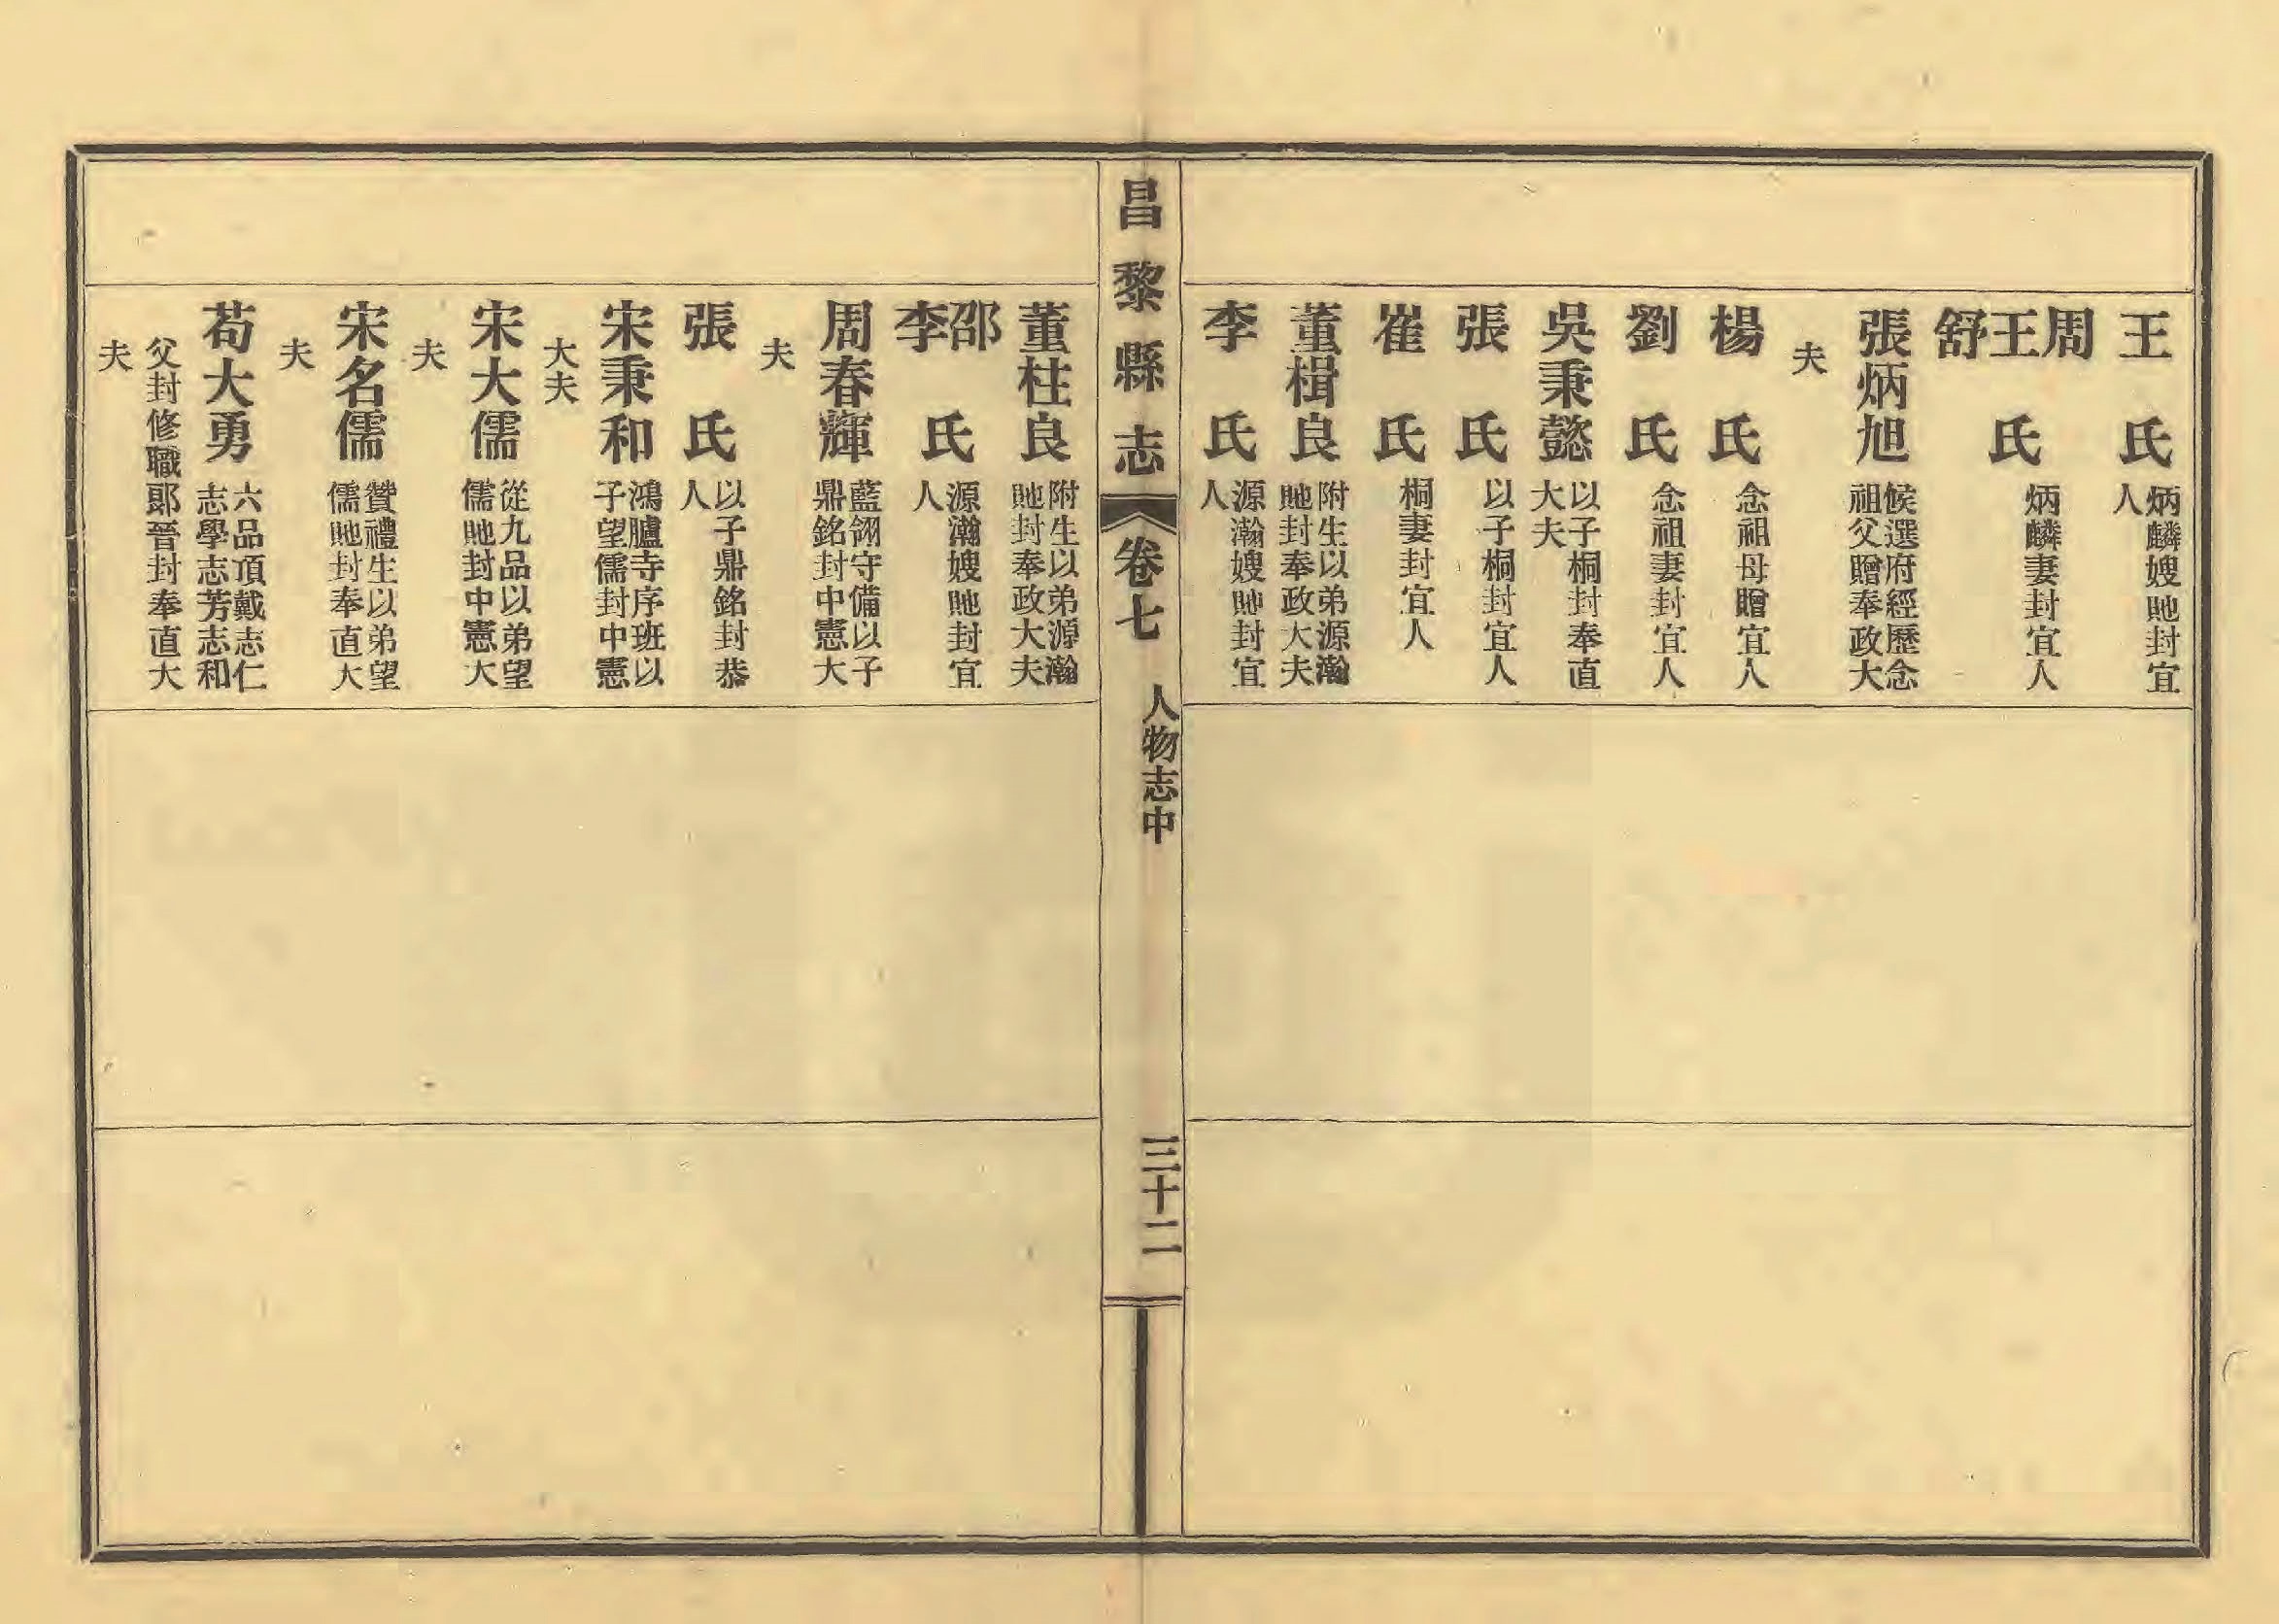 王氏
炳麟嫂貤封宜
人
周王舒氏
炳麟妻封宜人
張炳旭
候選府經歷念
祖父贈奉政大
夫
楊氏
念祖母贈宜人
劉氏
念祖妻封宜人
吳秉懿
以子桐封奉直
大夫
張氏
以子桐封宜人
崔氏
桐妻封宜人
董楫良
附生以弟源瀚
貤封奉政大夫
李氏
源瀚嫂貤封宜
人
昌黎縣志
卷七
人物志中
三十二
董柱良
附生以弟源瀚
貤封奉政大夫
邵李氏
源瀚嫂貤封宜
人
周春輝
藍翎守備以子
鼎銘封中憲大
夫
張氏
以子鼎銘封恭
人
宋秉和
鴻臚寺序班以
子望儒封中憲
大夫
宋大儒
從九品以弟望
儒貤封中憲大
夫
宋名儒
贊禮生以弟望
儒貤封奉直大
夫
荀大勇
六品頂戴志仁
志學志芳志和
父封修職郎晉封奉直大
夫